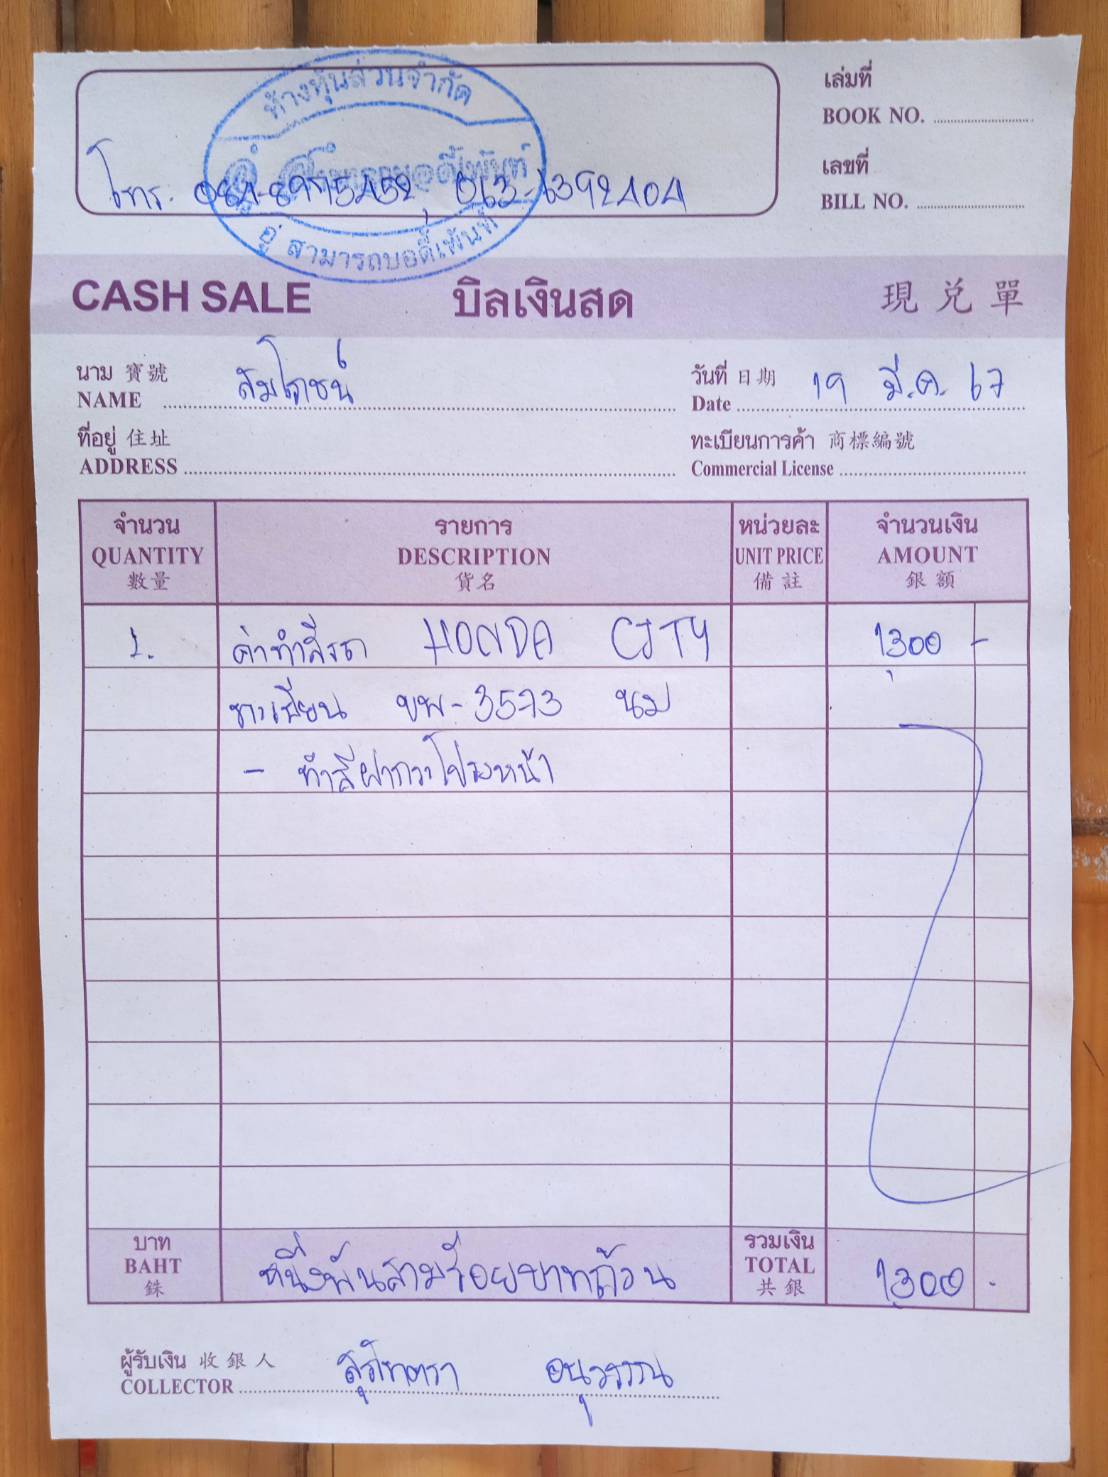 ห้างหุ้นส่วนจำกัด
อู่ สามารถบอดี้เพ้นท์
โทร. 063-6392404
อู่ สามารถบอดี้เพ้นท์
เล่มที่
BOOK NO.
เลขที่
BILL NO.
CASH SALE บิลเงินสด 現兌單
นาม 寶號
NAME สมโภชน์
วันที่ 日期
Date 19 มี.ค. 67
ที่อยู่ 住址
ADDRESS
ทะเบียนการค้า 商標編號
Commercial License
จำนวน รายการ หน่วยละ จำนวนเงิน
QUANTITY DESCRIPTION UNIT PRICE AMOUNT
數量 貨名 備註 銀額
1. ค่าทำสีรถ HONDA CITY 1,300 -
ทะเบียน ขพ-3573 นม
- ทำสีฝากระโปรงหน้า
บาท
BAHT
銖
หนึ่งพันสามร้อยบาทถ้วน
รวมเงิน
TOTAL
共銀
1,300 -
ผู้รับเงิน 收銀人
COLLECTOR อนุวรรณ